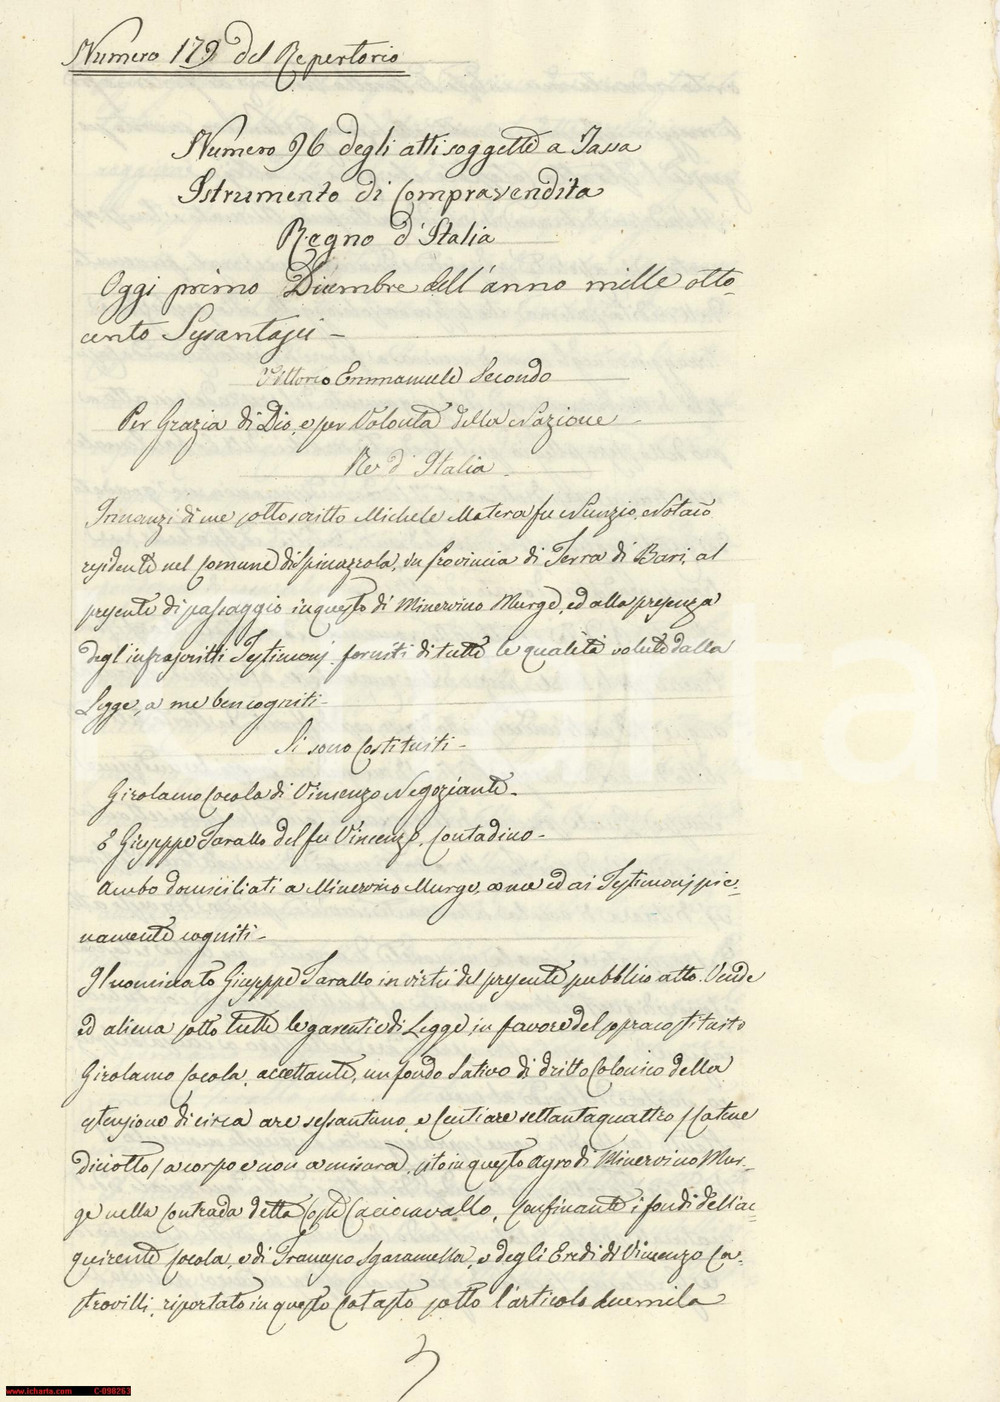 Numero 179 del Repertorio
Numero 96 degli atti soggetti a Tassa
Istrumento di Compravendita
Regno d'Italia
Oggi primo Dicembre dell'anno mille otto-
cento Sessantasei -
Vittorio Emmanuele Secondo
Per Grazia di Dio, e per Volontà della Nazione -
Re d'Italia -
Innanzi di me sottoscritto Michele Matera fu Nunzio, Notaio
residente nel Comune di Spinazzola, in Provincia di Terra di Bari, al
presente di passaggio in questo di Minervino Murge, ed alla presenza
degl'infrascritti Testimonj forniti di tutte le qualità volute dalla
Legge, a me ben cogniti -
Si sono Costituiti -
Girolamo Cocola di Vincenzo Negoziante -
E Giuseppe Tarallo del fu Vincenzo, Contadino -
Ambo domiciliati a Minervino Murge, a me ed ai Testimonj pie-
namente cogniti -
Il nominato Giuseppe Tarallo in virtù del presente pubblico atto Vende
ed aliena sotto tutte le garentie di Legge, in favore del sopracostituito
Girolamo Cocola, accettante, un fondo Sativo di dritto Colonico della
estensione di circa are sessantuno, e Centiare settantaquattro / Catene
diciotto / a corpo e non a misura, sito in questo Agro di Minervino Mur-
ge nella Contrada detta Coste Caciocavallo, Confinante i fondi dell'ac-
quirente Cocola, e di Francesco Sgaramella, e degli Eredi di Vincenzo Ca-
strovilli, riportato in questo Catasto sotto l'articolo duemila
www.icharta.com C-098263